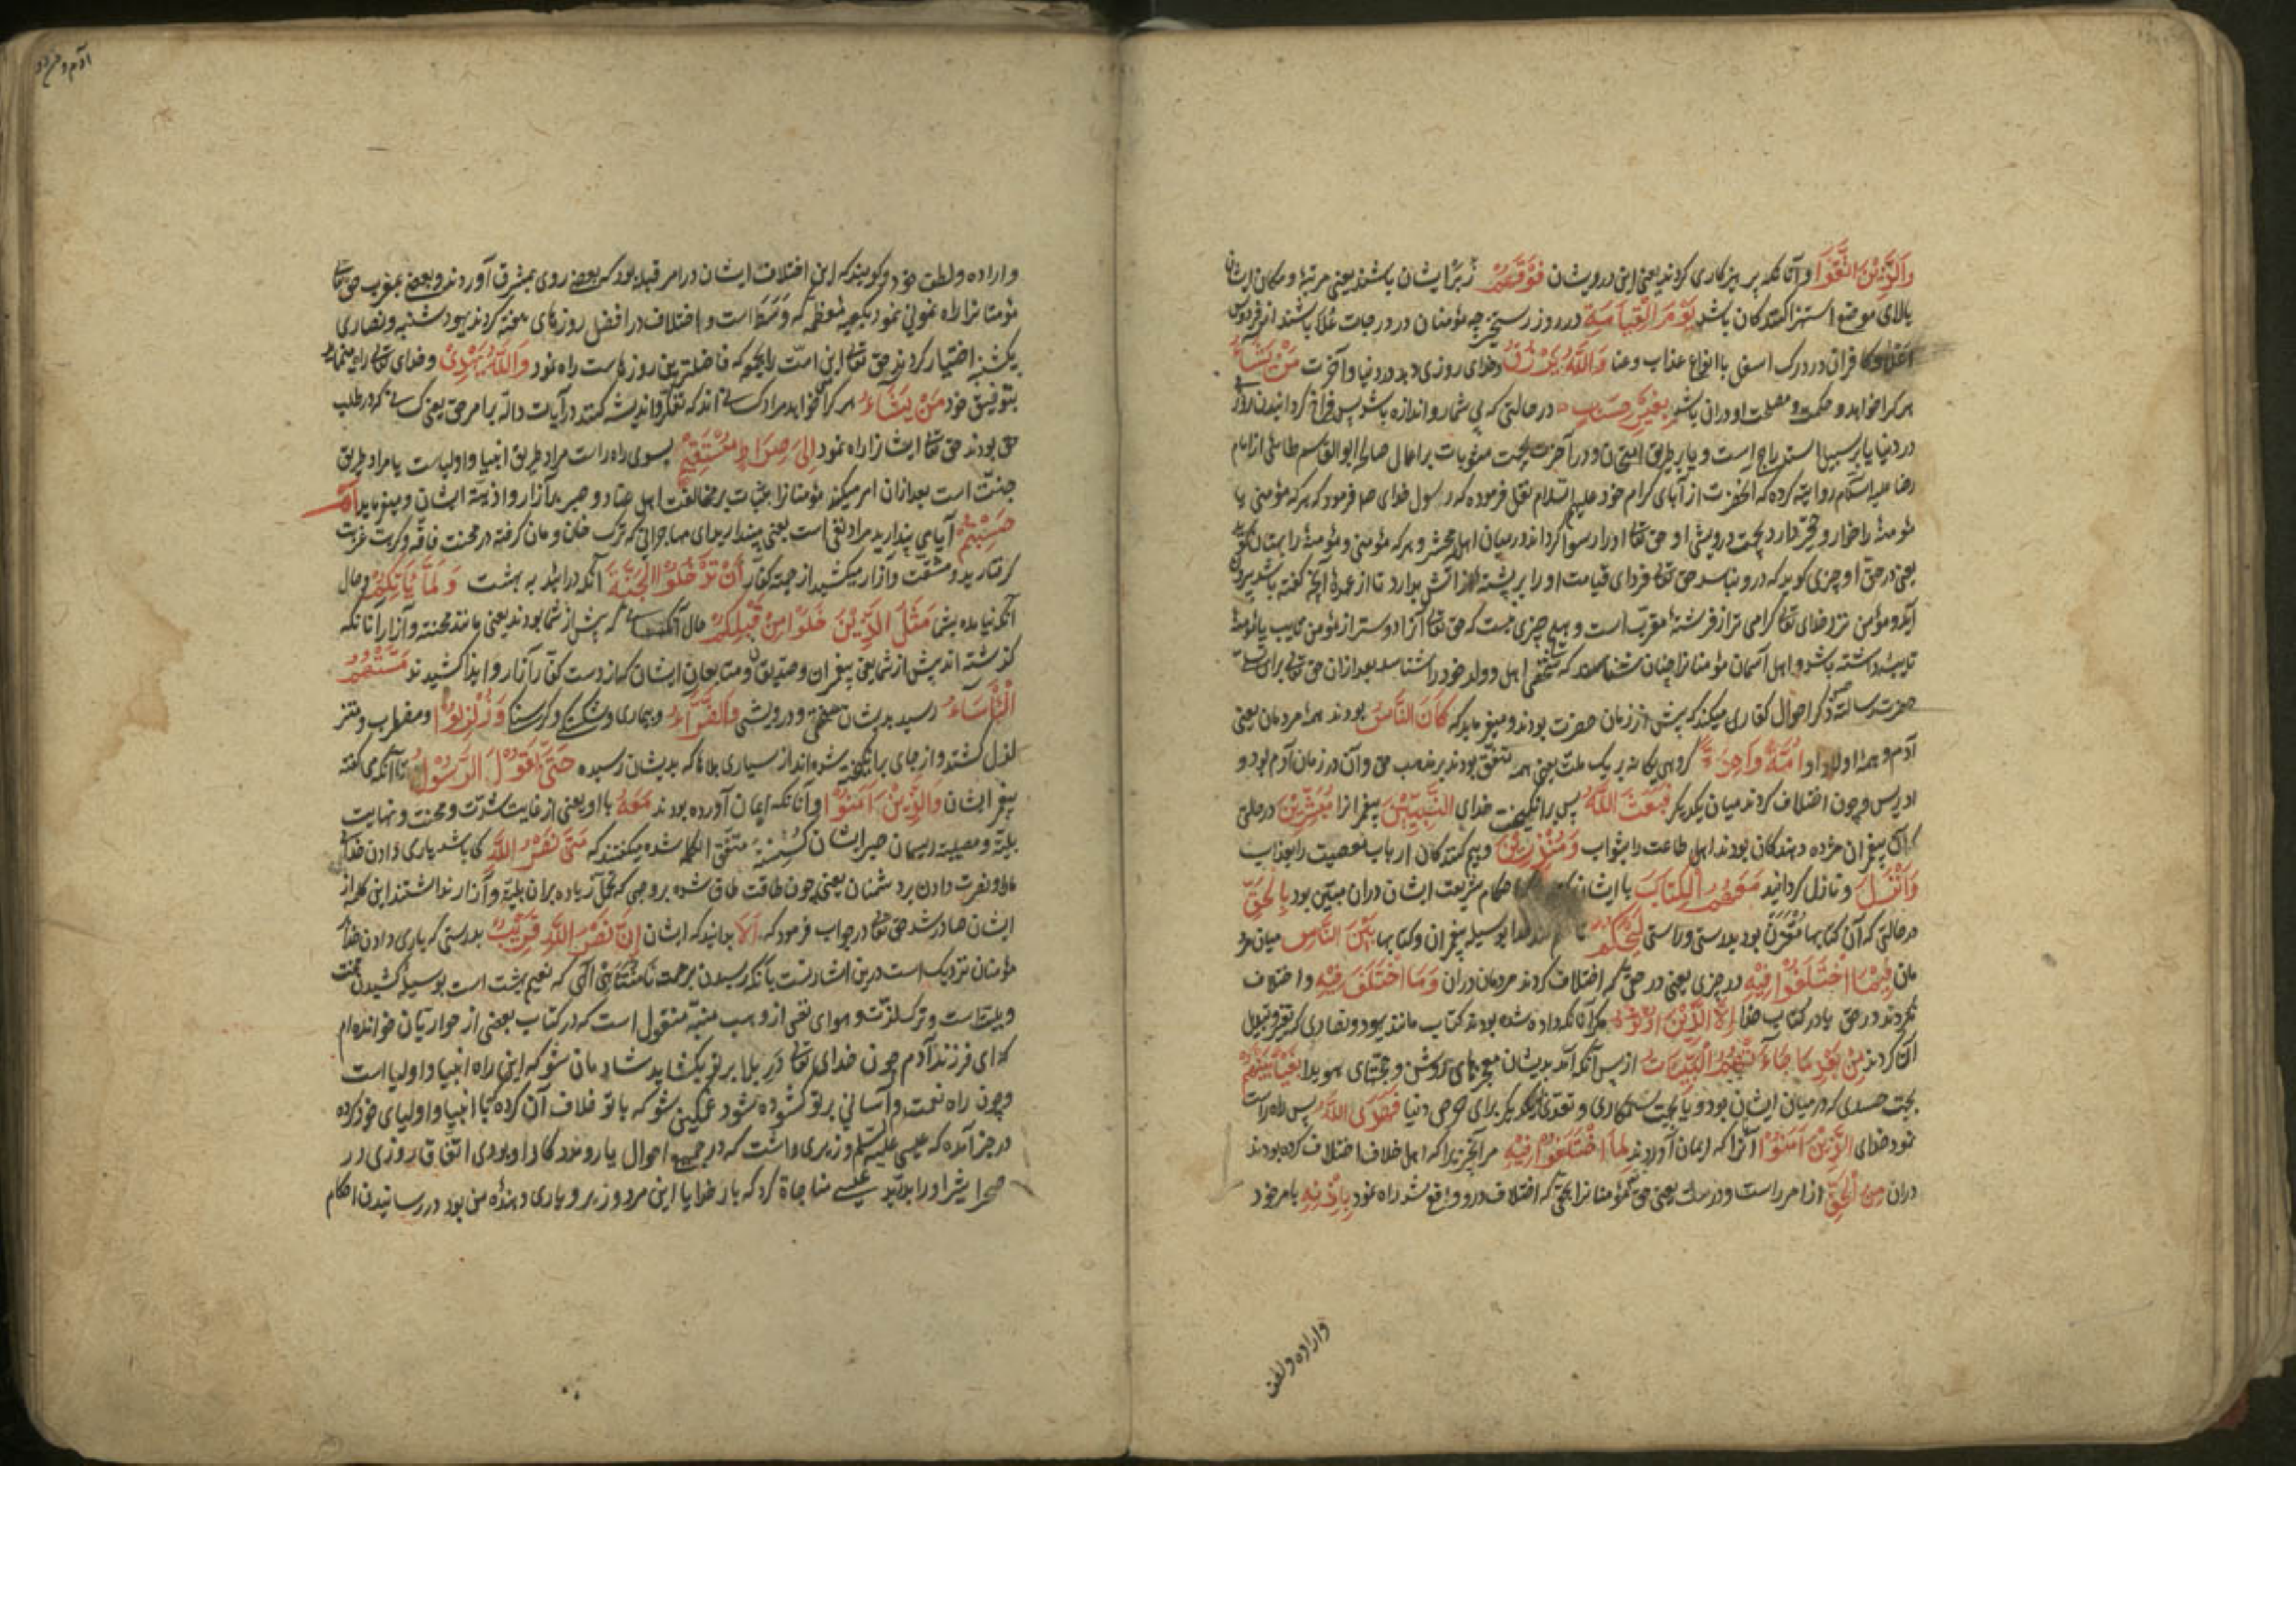 وَالَّذِیْنَ اتَّقَوْا و آنانکه پرهیزکاری کردند یعنی این درویشان فَوْقَهُمْ زبر ایشان باشند یعنی مرتبه و مکان ایشان
بالای موضع استهزا کنندکان باشد یَوْمَ الْقِیٰامَةِ در روز رستخیز چه مؤمنان در درجات علا باشند از فردوس
اعلا و کافران در درک اسفل باانواع عذاب و عنا وَاللّٰهُ یَرْزُقُ و خدای روزی دهد در دنیا و آخرت مَنْ یَشَاءُ
هر کرا خواهد و حکمت و مصلحت او دران باشد بِغَیْرِ حِسَابٍ در حالتی که بی شمار و اندازه باشد پس فراخ کردانیدن روزی
در دنیا یا بر سبیل استدراج است و یا بر طریق امتحان و در آخرت بجهت مثوبات بر اعمال صالح ابوالقاسم طائی از امام
رضا علیه السلام روایت کرده که انحضرت از آبای کرام خود علیهم السلام نقل فرموده که رسول خدای ص فرمود که هر که مؤمنی یا
مؤمنهٔ را خوار و حقیر دارد بجهت درویشی او حق تعالی او را رسوا کرداند در میان اهل محشر و هر که مؤمنی و مؤمنهٔ را بهتان کوید
یعنی در حق او چیزی کوید که درو نباشد حق تعالی فردای قیامت او را بر پشتهٔ از آتش بدارد تا از عهدهٔ آنچه کفته باشد بیرون
آید و مؤمن نزد خدای تعالی کرامی تر از فرشتهٔ مقرب است و هیچ چیزی نیست که حق تعالی آنرا دوستر از مؤمن تایب یا مؤمنهٔ
تایبه داشته باشد و اهل آسمان مؤمنانرا چنان شناسند که شخصی اهل و ولد خود را شناسد بعد ازان حق تعالی برای تسلی
حضرت رسالت ذکر احوال کفاری میکند که پیش از زمان حضرت بودند و میفرماید که کَانَ النَّاسُ بودند همه مردمان یعنی
آدم و همه اولاد او اُمَّةً وَاحِدَةً کروهی یکانه بر یک ملت یعنی همه متفق بودند بر مذهب حق و آن در زمان آدم بود و
ادریس و چون اختلاف کردند میان یکدیکر فَبَعَثَ اللّٰهُ پس برانکیخت خدای النَّبِیّٖنَ پیغمبرانرا مُبَشِّرِیْنَ در حالتی
که آن پیغمبران مژده دهندکان بودند اهل طاعت را بثواب وَمُنْذِرِیْنَ و بیم کنندکان ارباب معصیت را بعذاب
وَاَنْزَلَ و نازل کردانید مَعَهُمُ الْکِتَابَ با ایشان احکام شریعت ایشان دران مبیّن بود بِالْحَقِّ
در حالتی که آن کتابها مقترن بود بدرستی و راستی لِیَحْکُمَ تا حکم کند خدا بوسیله پیغمبران و کتابها بَیْنَ النَّاسِ میان مرد
مان فِیْمَا اخْتَلَفُوْا فِیْهِ در چیزی یعنی در حقی که اختلاف کردند مردمان دران وَمَا اخْتَلَفَ فِیْهِ و اختلاف
نکردند در حق یا در کتاب خدا اِلَّا الَّذِیْنَ اُوْتُوْهُ مکر آنانکه داده شده بودند کتاب مانند یهود و نصاری که تغیر و تبدیل
آن کردند مِنْ بَعْدِ مَا جَاءَتْهُمُ الْبَیِّنَاتُ از پس آنکه آمد بدیشان معجزهای روشن و حجتهای هویدا بَغْیًا بَیْنَهُمْ
بجهت حسدی که در میان ایشان بود و یا بجهت ستمکاری و تعدی یکدیکر برای حرص دنیا فَهَدَی اللّٰهُ پس راه راست
نمود خدای الَّذِیْنَ اٰمَنُوْا آنرا که ایمان آوردند لِمَا اخْتَلَفُوْا فِیْهِ مر آنچیزیرا که اهل خلاف اختلاف کرده بودند
دران مِنَ الْحَقِّ از امر راست و درست یعنی حق تعالی مؤمنانرا بحقی که اختلاف درو واقع شد راه نمود بِاِذْنِهٖ بامر خود
واراده ولطف
آدم و خرد
واراده ولطف خود و کویند که این اختلاف ایشان در امر قبله بود که بعضی روی بمشرق آوردند و بعضی بمغرب حق تعالی
مؤمنانرا راه نمونی نمود بکعبه معظمه که وسط است و اختلاف در افضل روزهای هفته کردند یهود شنبه و نصاری
یکشنبه اختیار کردند حق تعالی این امت را بجمعه که فاضلترین روزهاست راه نمود وَاللّٰهُ یَهْدِیْ و خدای تعالی راه مینماید
بتوفیق خود مَنْ یَشَاءُ هر کرا خواهد مراد کسانی اند که تفکر و اندیشه کنند در آیات داله بر امر حق یعنی کسانی که در طلب
حق بودند حق تعالی ایشانرا راه نمود اِلٰی صِرَاطٍ مُسْتَقِیْمٍ بسوی راه راست مراد طریق انبیا و اولیاست یا مراد طریق
جنت است بعد ازان امر میکند مؤمنانرا بثبات بر مخالفت اهل عناد و صبر بر آزار و اذیت ایشان و میفرماید اَمْ
حَسِبْتُمْ آیا می پندارید مراد نفی است یعنی مپندارید ای مهاجرانی که ترک خان و مان کرفته در محنت فاقه و کربت غربت
کرفتارید و مشقت و آزار میکشید از جهة کفار اَنْ تَدْخُلُوا الْجَنَّةَ آنکه درایند به بهشت وَلَمَّا یَأْتِکُمْ و حال
آنکه نیامده بشما مَثَلُ الَّذِیْنَ خَلَوْا مِنْ قَبْلِکُمْ حال آنکسانی که پیش از شما بودند یعنی مانند محنت و آزار آنانکه
کذشته اند پیش از شما یعنی پیغمبران و صدیقان و متابعان ایشان که از دست کفار آزار و ایذا کشیدند مَسَّتْهُمُ
الْبَأْسَاءُ رسید بدیشان سختی و درویشی وَالضَّرَّاءُ و بیماری و شکستکی و کرسنکی وَزُلْزِلُوْا و مضطرب و متز
لزل کشتند و از جای برانکیخته شدند از بسیاری بلاها که بدیشان رسیده حَتّٰی یَقُوْلَ الرَّسُوْلُ تا آنکه می کفت
پیغمبر ایشان وَالَّذِیْنَ اٰمَنُوْا و آنانکه ایمان آورده بودند مَعَهُ با او یعنی از غایت شدت و محنت و نهایت
بلیه و مصیبت ریسمان صبر ایشان کسسته متفق الکلمه شده میکفتند که مَتٰی نَصْرُ اللّٰهِ کی باشد یاری دادن خدای
ما را و نصرت دادن بر دشمنان یعنی چون طاقت طاق شده بر وجهی که تحمل زیاده بران بلیه و آزار نداشتند این کلمه از
ایشان صادر شد حق تعالی در جواب فرمود که اَلَا بدانید که ایشان اِنَّ نَصْرَ اللّٰهِ قَرِیْبٌ بدرستی که یاری دادن خدا
مؤمنان نزدیک است درین اشارتست بانکه رسیدن برحمت نامتناهی الهی که نعیم بهشت است بوسیله کشیدن محنت
و بلیتاست و ترک لذت و هوای نفس از وهب منبه منقول است که در کتاب بعضی از حواریّان خوانده ام
که ای فرزند آدم چون خدای تعالی در بلا بر تو بکشاید شادمان شو که این راه انبیا و اولیا است
و چون راه نعمت و آسانی بر تو کشوده شود غمکین شو که با تو خلاف آن کرده که با انبیا و اولیای خود کرده
در خبر آمده که عیسی علیه السلم وزیری داشت که در جمیع احوال یار و مددکار او بودی اتفاق روزی در
صحرا شیر او را بدرید عیسی مناجاة کرد که بار خدایا این مرد وزیر و یاری دهندهٔ من بود در رسانیدن احکام